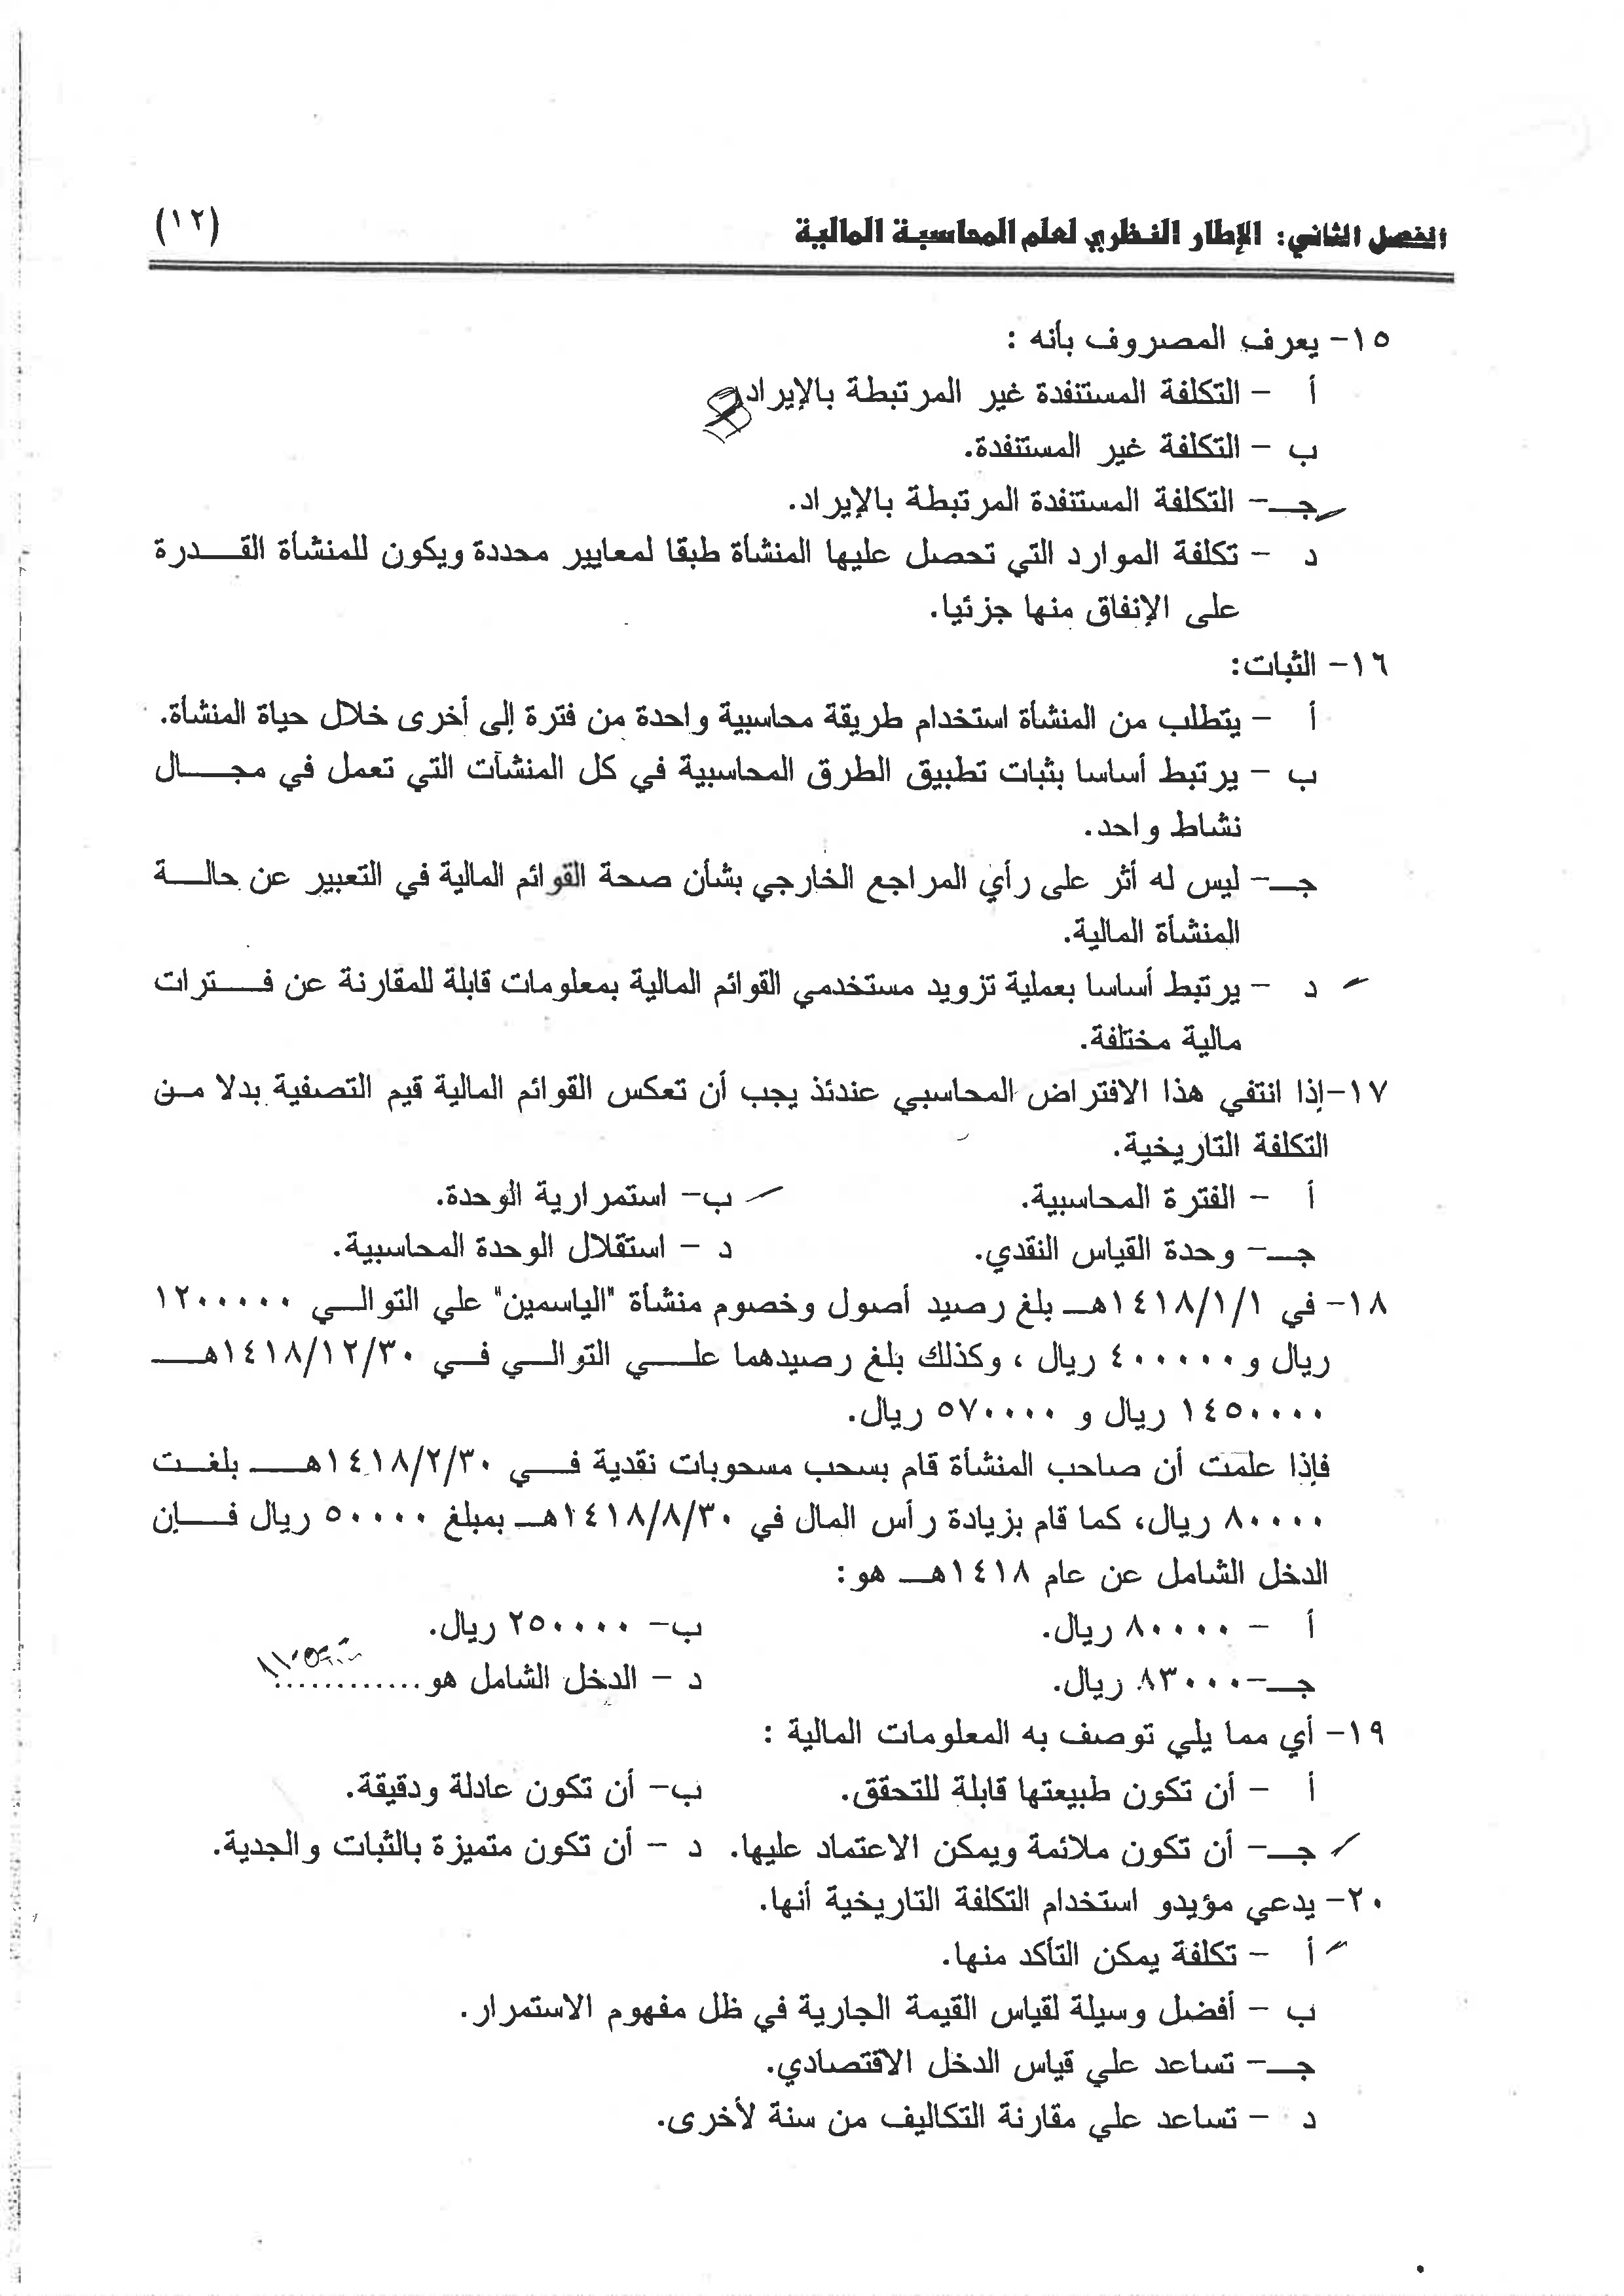 الفصل الثاني: الإطار النظري لعلم المحاسبة المالية (١٢)
١٥- يعرف المصروف بأنه :
أ - التكلفة المستنفدة غير المرتبطة بالإيراد.
ب - التكلفة غير المستنفدة.
جـ- التكلفة المستنفدة المرتبطة بالإيراد.
د - تكلفة الموارد التي تحصل عليها المنشأة طبقا لمعايير محددة ويكون للمنشأة القدرة
على الإنفاق منها جزئيا.
١٦- الثبات:
أ - يتطلب من المنشأة استخدام طريقة محاسبية واحدة من فترة إلى أخرى خلال حياة المنشأة.
ب - يرتبط أساسا بثبات تطبيق الطرق المحاسبية في كل المنشآت التي تعمل في مجال
نشاط واحد.
جـ- ليس له أثر على رأي المراجع الخارجي بشأن صحة القوائم المالية في التعبير عن حالة
المنشأة المالية.
د - يرتبط أساسا بعملية تزويد مستخدمي القوائم المالية بمعلومات قابلة للمقارنة عن فترات
مالية مختلفة.
١٧-إذا انتفي هذا الافتراض المحاسبي عندئذ يجب أن تعكس القوائم المالية قيم التصفية بدلا من
التكلفة التاريخية.
أ - الفترة المحاسبية. ب- استمرارية الوحدة.
جـ- وحدة القياس النقدي. د - استقلال الوحدة المحاسبية.
١٨- في ١٤١٨/١/١هـ بلغ رصيد أصول وخصوم منشأة "الياسمين" علي التوالي ١٢٠٠٠٠٠
ريال و٤٠٠٠٠٠ ريال ، وكذلك بلغ رصيدهما علي التوالي في ١٤١٨/١٢/٣٠هـ
١٤٥٠٠٠٠ ريال و ٥٧٠٠٠٠ ريال.
فإذا علمت أن صاحب المنشأة قام بسحب مسحوبات نقدية في ١٤١٨/٢/٣٠هـ بلغت
٨٠٠٠٠ ريال، كما قام بزيادة رأس المال في ١٤١٨/٨/٣٠هـ بمبلغ ٥٠٠٠٠ ريال فإن
الدخل الشامل عن عام ١٤١٨هـ هو:
أ - ٨٠٠٠٠ ريال. ب- ٢٥٠٠٠٠ ريال.
جـ-٨٣٠٠٠ ريال. د - الدخل الشامل هو............
١٩- أي مما يلي توصف به المعلومات المالية :
أ - أن تكون طبيعتها قابلة للتحقق. ب- أن تكون عادلة ودقيقة.
جـ- أن تكون ملائمة ويمكن الاعتماد عليها. د - أن تكون متميزة بالثبات والجدية.
٢٠- يدعي مؤيدو استخدام التكلفة التاريخية أنها.
أ - تكلفة يمكن التأكد منها.
ب - أفضل وسيلة لقياس القيمة الجارية في ظل مفهوم الاستمرار.
جـ- تساعد علي قياس الدخل الاقتصادي.
د - تساعد علي مقارنة التكاليف من سنة لأخرى.